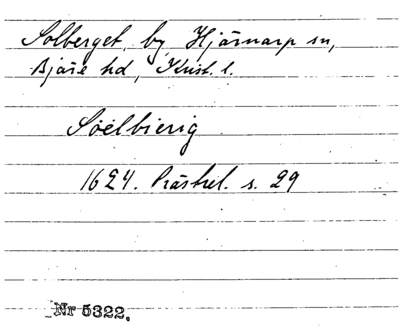 Solberget, by, Hjärnarp sn,
Bjäre hd, Krist. l.
Söelbierig
1624. Prästrel. s. 29
Nr 5322.